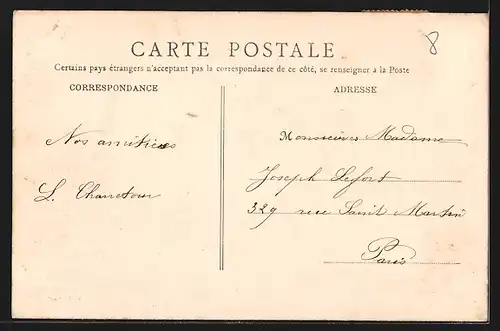 8
CARTE POSTALE
Certains pays étrangers n'acceptant pas la correspondance de ce côté, se renseigner à la Poste
CORRESPONDANCE
ADRESSE
Nos amitiés
L. Chanetour
Monsieur Madame
Joseph Lefort
329 rue Saint Martin
Paris